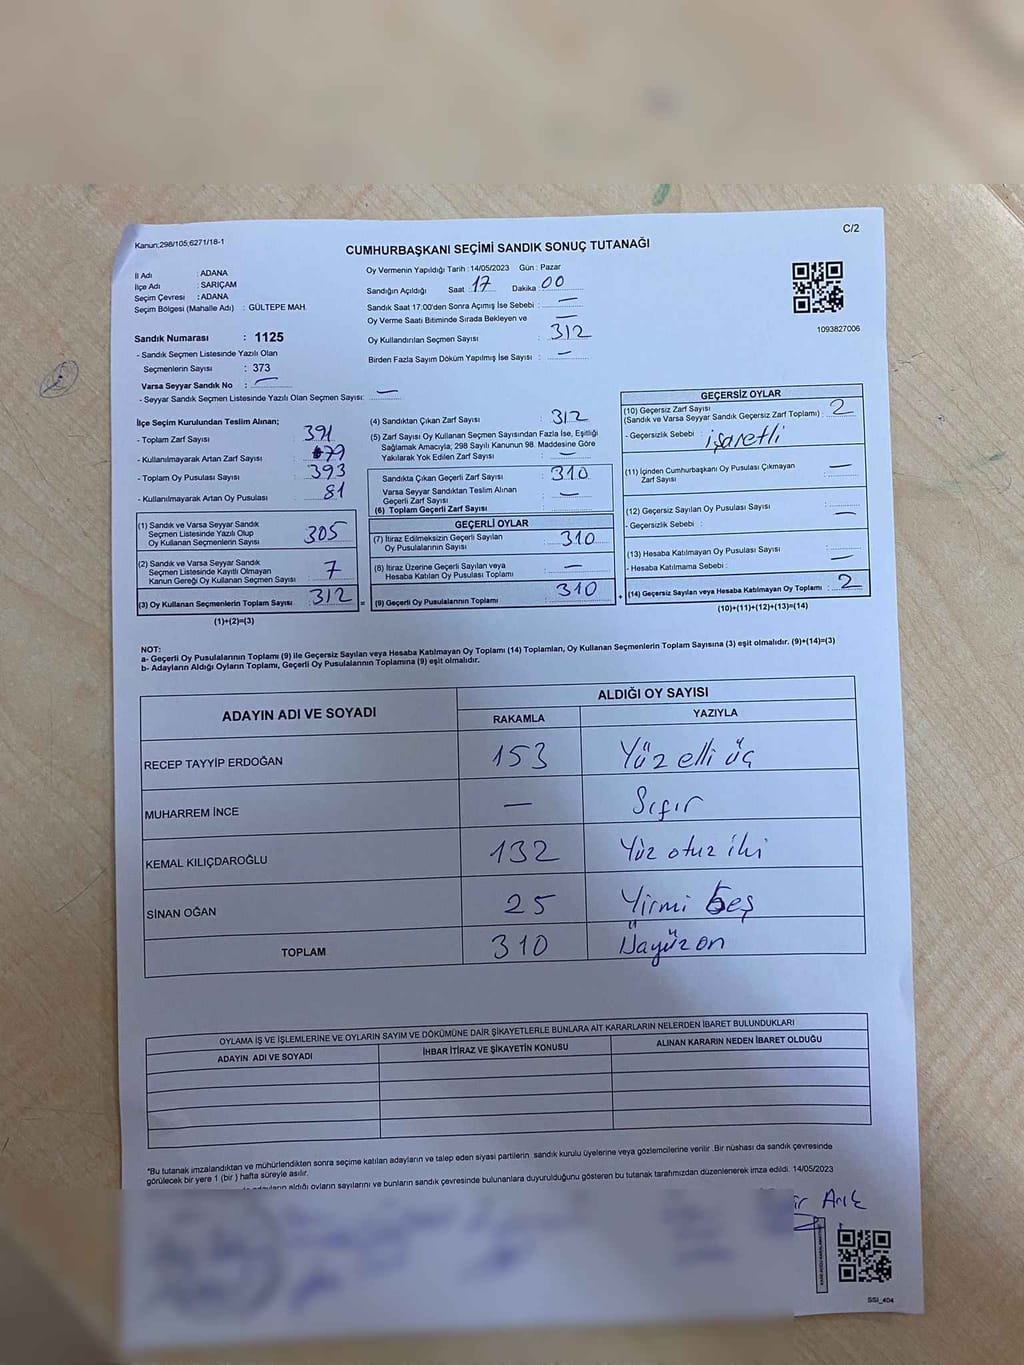 Kanun:298/105;6271/18-1
C/2
CUMHURBAŞKANI SEÇİMİ SANDIK SONUÇ TUTANAĞI
İl Adı : ADANA
İlçe Adı : SARIÇAM
Seçim Çevresi : ADANA
Seçim Bölgesi (Mahalle Adı) : GÜLTEPE MAH.
Sandık Numarası : 1125
- Sandık Seçmen Listesinde Yazılı Olan
Seçmenlerin Sayısı : 373
Varsa Seyyar Sandık No : —
- Seyyar Sandık Seçmen Listesinde Yazılı Olan Seçmen Sayısı: —
Oy Vermenin Yapıldığı Tarih : 14/05/2023 Gün : Pazar
Sandığın Açıldığı Saat 17 Dakika 00
Sandık Saat 17.00'den Sonra Açımış İse Sebebi : —
Oy Verme Saati Bitiminde Sırada Bekleyen ve —
Oy Kullandırılan Seçmen Sayısı : 312
Birden Fazla Sayım Döküm Yapılmış İse Sayısı : —
1093827006
İlçe Seçim Kurulundan Teslim Alınan;
- Toplam Zarf Sayısı 391
- Kullanılmayarak Artan Zarf Sayısı 79
- Toplam Oy Pusulası Sayısı 393
- Kullanılmayarak Artan Oy Pusulası 81
(1) Sandık ve Varsa Seyyar Sandık
Seçmen Listesinde Yazılı Olup
Oy Kullanan Seçmenlerin Sayısı 305
(2) Sandık ve Varsa Seyyar Sandık
Seçmen Listesinde Kayıtlı Olmayan
Kanun Gereği Oy Kullanan Seçmen Sayısı 7
(3) Oy Kullanan Seçmenlerin Toplam Sayısı 312 =
(1)+(2)=(3)
(4) Sandıktan Çıkan Zarf Sayısı : 312
(5) Zarf Sayısı Oy Kullanan Seçmen Sayısından Fazla İse, Eşitliği
Sağlamak Amacıyla; 298 Sayılı Kanunun 98. Maddesine Göre
Yakılarak Yok Edilen Zarf Sayısı : —
Sandıkta Çıkan Geçerli Zarf Sayısı : 310
Varsa Seyyar Sandıktan Teslim Alınan
Geçerli Zarf Sayısı —
(6) Toplam Geçerli Zarf Sayısı
GEÇERLİ OYLAR
(7) İtiraz Edilmeksizin Geçerli Sayılan
Oy Pusulalarının Sayısı : 310
(8) İtiraz Üzerine Geçerli Sayılan veya
Hesaba Katılan Oy Pusulası Toplamı : —
(9) Geçerli Oy Pusulalarının Toplamı : 310 +
GEÇERSİZ OYLAR
(10) Geçersiz Zarf Sayısı
(Sandık ve Varsa Seyyar Sandık Geçersiz Zarf Toplamı) : 2
- Geçersizlik Sebebi : işaretli
(11) İçinden Cumhurbaşkanı Oy Pusulası Çıkmayan
Zarf Sayısı —
(12) Geçersiz Sayılan Oy Pusulası Sayısı —
- Geçersizlik Sebebi :
(13) Hesaba Katılmayan Oy Pusulası Sayısı —
- Hesaba Katılmama Sebebi :
(14) Geçersiz Sayılan veya Hesaba Katılmayan Oy Toplamı : 2
(10)+(11)+(12)+(13)=(14)
NOT:
a- Geçerli Oy Pusulalarının Toplamı (9) ile Geçersiz Sayılan veya Hesaba Katılmayan Oy Toplamı (14) Toplamları, Oy Kullanan Seçmenlerin Toplam Sayısına (3) eşit olmalıdır. (9)+(14)=(3)
b- Adayların Aldığı Oyların Toplamı, Geçerli Oy Pusulalarının Toplamına (9) eşit olmalıdır.
ADAYIN ADI VE SOYADI
ALDIĞI OY SAYISI
RAKAMLA YAZIYLA
RECEP TAYYİP ERDOĞAN 153 Yüz elli üç
MUHARREM İNCE — Sıfır
KEMAL KILIÇDAROĞLU 132 Yüz otuz iki
SİNAN OĞAN 25 Yirmi beş
TOPLAM 310 Üçyüz on
OYLAMA İŞ VE İŞLEMLERİNE VE OYLARIN SAYIM VE DÖKÜMÜNE DAİR ŞİKAYETLERLE BUNLARA AİT KARARLARIN NELERDEN İBARET BULUNDUKLARI
ADAYIN ADI VE SOYADI İHBAR İTİRAZ VE ŞİKAYETİN KONUSU ALINAN KARARIN NEDEN İBARET OLDUĞU
*Bu tutanak imzalandıktan ve mühürlendikten sonra seçime katılan adayların ve talep eden siyasi partilerin sandık kurulu üyelerine veya gözlemcilerine verilir .Bir nüshası da sandık çevresinde
görülecek bir yere 1 (bir ) hafta süreyle asılır.
aldığı oyların sayılarını ve bunların sandık çevresinde bulunanlara duyurulduğunu gösteren bu tutanak tarafımızdan düzenlenerek imza edildi. 14/05/2023
Arık
SSI_404